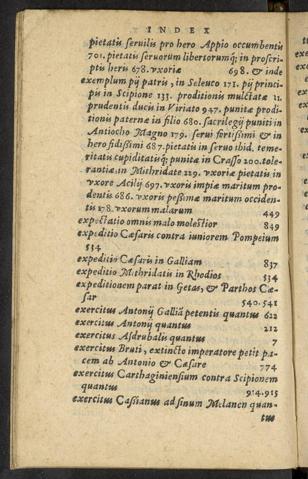 INDEX
pietatis seruilis pro hero Appio occumbentis
701. pietatis seruorum libertorumq; in proscri-
ptis heris 678. vxoriæ 698. & inde
exemplum pij patris, in Seleuco 171. pij princi-
pis in Scipione 133. proditionis mulctatæ 11.
prudentis ducis in Viriato 947. punitæ prodi-
tionis paternæ in filio 680. sacrilegij puniti in
Antiocho Magno 179. serui fortissimi & in
hero fidissimi 687. pietatis in seruo ibid. teme-
ritatis cupiditatisq; punitæ in Crasso 200. tole-
rantiæ in Mithridate 229. vxoriæ pietatis in
vxore Acilij 697. vxoris impiæ maritum pro-
dentis 686. vxoris pessimæ maritum occiden-
tis 178. vxorum malarum 449
expectatio omnis malo molestior 849
expeditio Cæsaris contra iuniorem Pompeium
534
expeditio Cæsaris in Galliam 837
expeditio Mithridatis in Rhodios 534
expeditionem parat in Getas, & Parthos Cæ-
sar 540.541
exercitus Antonij Galliã petentis quantus 622
exercitus Antonij quantus 212
exercitus Asdrubalis quantus 7
exercitus Bruti, extincto imperatore petit pa-
cem ab Antonio & Cæsare 774
exercitus Carthaginiensium contra Scipionem
quantus 914.915
exercitus Cassianus ad sinum Melanen quan-
tus